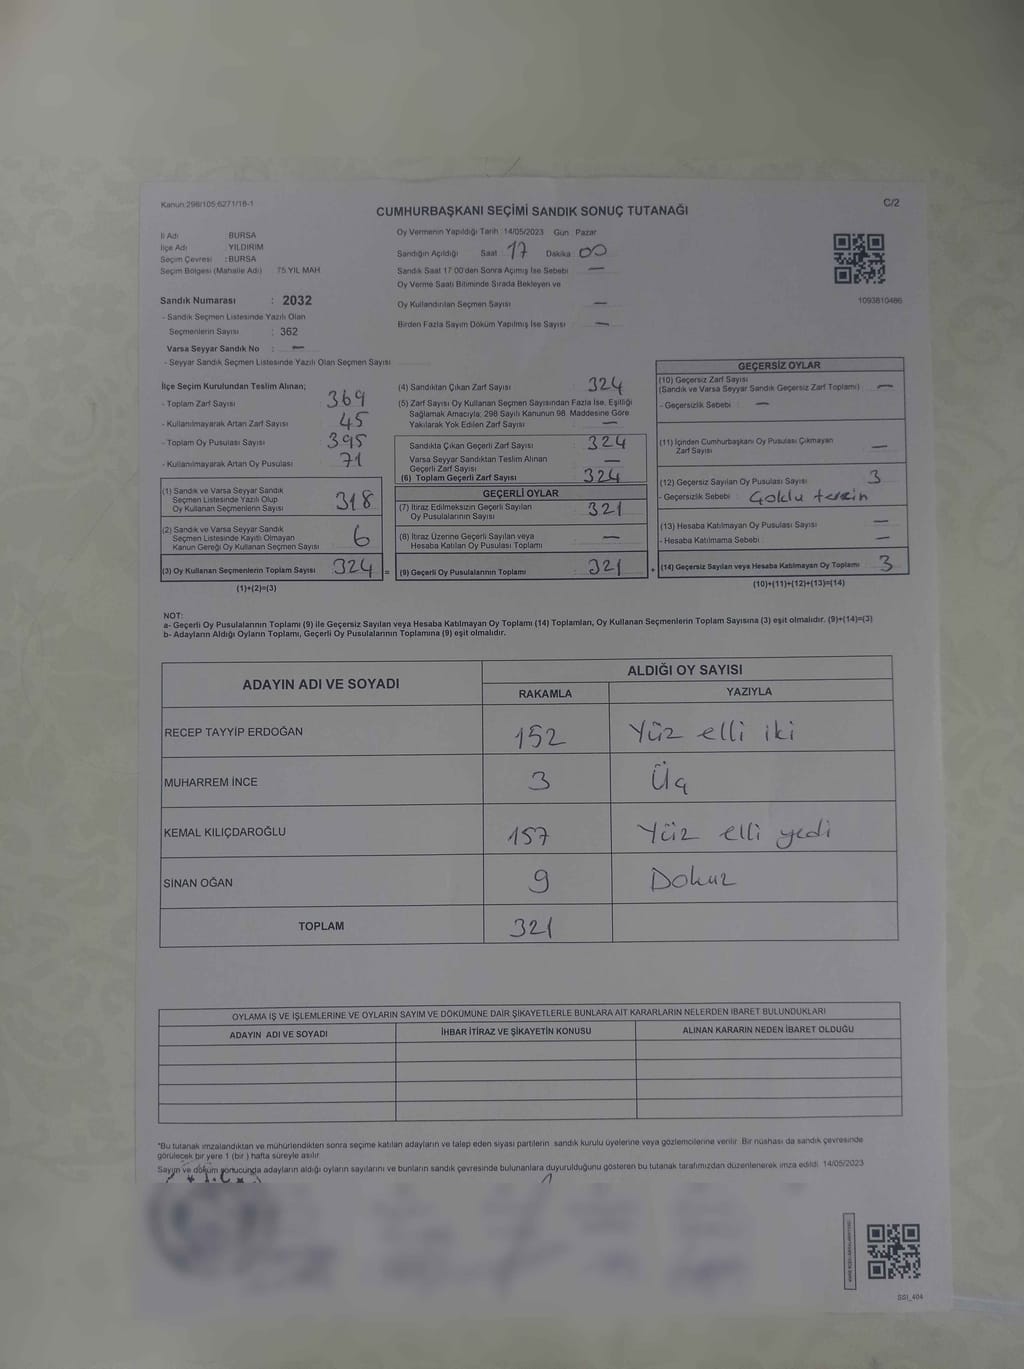 Kanun:298/105;6271/16-1
CUMHURBAŞKANI SEÇİMİ SANDIK SONUÇ TUTANAĞI
C/2
İl Adı : BURSA
İlçe Adı : YILDIRIM
Seçim Çevresi : BURSA
Seçim Bölgesi (Mahalle Adı) 75.YIL MAH
Sandık Numarası : 2032
- Sandık Seçmen Listesinde Yazılı Olan
Seçmenlerin Sayısı : 362
Varsa Seyyar Sandık No : —
- Seyyar Sandık Seçmen Listesinde Yazılı Olan Seçmen Sayısı
Oy Vermenin Yapıldığı Tarih : 14/05/2023 Gün : Pazar
Sandığın Açıldığı Saat 17 Dakika 00
Sandık Saat 17:00'den Sonra Açımış İse Sebebi —
Oy Verme Saati Bitiminde Sırada Bekleyen ve
Oy Kullandırılan Seçmen Sayısı —
Birden Fazla Sayım Döküm Yapılmış İse Sayısı —
1093810486
İlçe Seçim Kurulundan Teslim Alınan;
- Toplam Zarf Sayısı 369
- Kullanılmayarak Artan Zarf Sayısı 45
- Toplam Oy Pusulası Sayısı 395
- Kullanılmayarak Artan Oy Pusulası 71
(1) Sandık ve Varsa Seyyar Sandık
Seçmen Listesinde Yazılı Olup
Oy Kullanan Seçmenlerin Sayısı 318
(2) Sandık ve Varsa Seyyar Sandık
Seçmen Listesinde Kayıtlı Olmayan
Kanun Gereği Oy Kullanan Seçmen Sayısı 6
(3) Oy Kullanan Seçmenlerin Toplam Sayısı 324 =
(1)+(2)=(3)
(4) Sandıktan Çıkan Zarf Sayısı 324
(5) Zarf Sayısı Oy Kullanan Seçmen Sayısından Fazla İse, Eşitliği
Sağlamak Amacıyla; 298 Sayılı Kanunun 98. Maddesine Göre
Yakılarak Yok Edilen Zarf Sayısı —
Sandıkta Çıkan Geçerli Zarf Sayısı 324
Varsa Seyyar Sandıktan Teslim Alınan
Geçerli Zarf Sayısı —
(6) Toplam Geçerli Zarf Sayısı 324
GEÇERLİ OYLAR
(7) İtiraz Edilmeksizin Geçerli Sayılan
Oy Pusulalarının Sayısı 321
(8) İtiraz Üzerine Geçerli Sayılan veya
Hesaba Katılan Oy Pusulası Toplamı —
(9) Geçerli Oy Pusulalarının Toplamı 321 +
GEÇERSİZ OYLAR
(10) Geçersiz Zarf Sayısı
(Sandık ve Varsa Seyyar Sandık Geçersiz Zarf Toplamı) —
- Geçersizlik Sebebi : —
(11) İçinden Cumhurbaşkanı Oy Pusulası Çıkmayan
Zarf Sayısı —
(12) Geçersiz Sayılan Oy Pusulası Sayısı 3
- Geçersizlik Sebebi :
(13) Hesaba Katılmayan Oy Pusulası Sayısı —
- Hesaba Katılmama Sebebi : —
(14) Geçersiz Sayılan veya Hesaba Katılmayan Oy Toplamı 3
(10)+(11)+(12)+(13)=(14)
NOT:
a- Geçerli Oy Pusulalarının Toplamı (9) ile Geçersiz Sayılan veya Hesaba Katılmayan Oy Toplamı (14) Toplamları, Oy Kullanan Seçmenlerin Toplam Sayısına (3) eşit olmalıdır. (9)+(14)=(3)
b- Adayların Aldığı Oyların Toplamı, Geçerli Oy Pusulalarının Toplamına (9) eşit olmalıdır.
ADAYIN ADI VE SOYADI
ALDIĞI OY SAYISI
RAKAMLA YAZIYLA
RECEP TAYYİP ERDOĞAN 152 Yüz elli iki
MUHARREM İNCE 3 Üç
KEMAL KILIÇDAROĞLU 157 Yüz elli yedi
SİNAN OĞAN 9 Dokuz
TOPLAM 321
OYLAMA İŞ VE İŞLEMLERİNE VE OYLARIN SAYIM VE DÖKÜMÜNE DAİR ŞİKAYETLERLE BUNLARA AİT KARARLARIN NELERDEN İBARET BULUNDUKLARI
ADAYIN ADI VE SOYADI İHBAR İTİRAZ VE ŞİKAYETİN KONUSU ALINAN KARARIN NEDEN İBARET OLDUĞU
*Bu tutanak imzalandıktan ve mühürlendikten sonra seçime katılan adayların ve talep eden siyasi partilerin sandık kurulu üyelerine veya gözlemcilerine verilir. Bir nüshası da sandık çevresinde
görülecek bir yere 1 (bir ) hafta süreyle asılır.
Sayım ve döküm sonucunda adayların aldığı oyların sayılarını ve bunların sandık çevresinde bulunanlara duyurulduğunu gösteren bu tutanak tarafımızdan düzenlenerek imza edildi. 14/05/2023
SSI_404